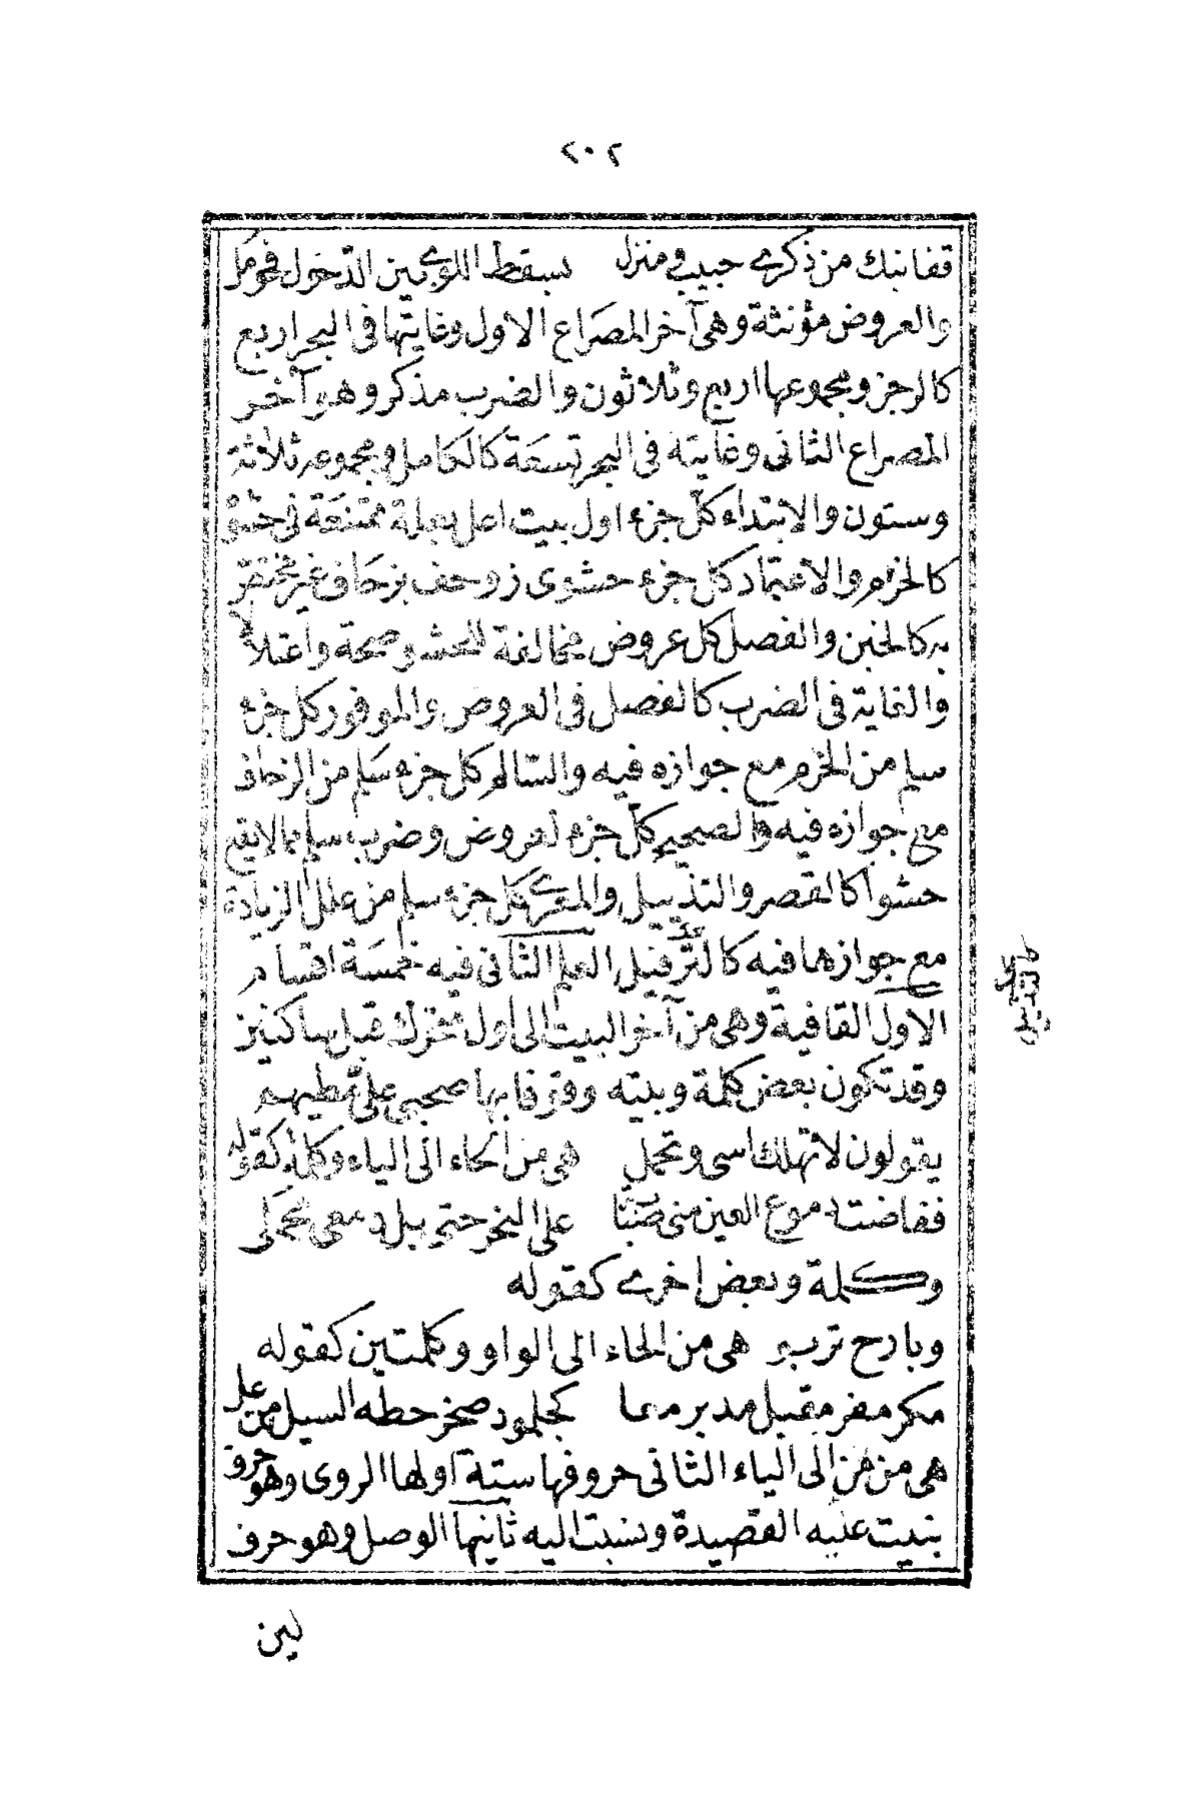 ٢٠٢
قفا نبك من ذكرى حبيب ومنزل بسقط اللوى بين الدخول فحومل
والعروض مؤنثة وهى آخر المصراع الاول وغايتها فى البحر اربع
كالرجز ومجموعها اربع وثلاثون والضرب مذكر وهو آخر
المصراع الثانى وغايته فى البحر تسعة كالكامل ومجموعه ثلاثة
وستون والابتداء كل جزء اول بيت اعل بعلة ممتنعة فى حشو
كالخرم والاعتماد كل جزء حشوى زوحف بزحاف غير مختص
به كالخبن والفصل كل عروض مخالفة للحشو صحة واعتلالا
والغاية فى الضرب كالفصل فى العروض والموفور كل جزء
سلم من الخرم مع جوازه فيه والسالم كل جزء سلم من الزحاف
مع جوازه فيه والصحيح كل جزء لعروض وضرب سلم مما لا يقع
حشوا كالقصر والتذييل والمعرى كل جزء سلم من علل الزيادة
مع جوازها فيه كالترفيل العلم الثانى فيه خمسة اقسام
الاول القافية وهى من آخر البيت الى اول متحرك قبل ساكنين
وقد تكون بعض كلمة وبيته وقوفا بها صحبى على مطيهم
يقولون لا تهلك اسى وتحمل هى من الحاء الى الياء وكلمة كقوله
ففاضت دموع العين منى صبابة على النحر حتى بل دمعى محملى
وكلمة وبعض اخرى كقوله
وبارح ترب هى من الحاء الى الواو وكلمتين كقوله
مكر مفر مقبل مدبر معا كجلمود صخر حطه السيل من عل
هى من من الى الياء الثانى حروفها ستة اولها الروى وهو حرف
بنيت عليه القصيدة ونسبت اليه ثانيها الوصل وهو حرف
لين
كالتذييل